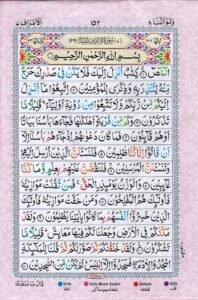 ولو اننا ۸ ۱۵۲ الاعراف ۷
بِسْمِ اللّٰهِ الرَّحْمٰنِ الرَّحِيْمِ
الٓمّٓصٓ كِتٰبٌ اُنْزِلَ اِلَيْكَ فَلَا يَكُنْ فِيْ صَدْرِكَ حَرَجٌ
مِّنْهُ لِتُنْذِرَ بِهٖ وَذِكْرٰى لِلْمُؤْمِنِيْنَ اِتَّبِعُوْا مَآ اُنْزِلَ
اِلَيْكُمْ مِّنْ رَّبِّكُمْ وَلَا تَتَّبِعُوْا مِنْ دُوْنِهٖٓ اَوْلِيَآءَ قَلِيْلًا مَّا
تَذَكَّرُوْنَ وَكَمْ مِّنْ قَرْيَةٍ اَهْلَكْنٰهَا فَجَآءَهَا بَاْسُنَا بَيَاتًا
اَوْ هُمْ قَآئِلُوْنَ فَمَا كَانَ دَعْوٰىهُمْ اِذْ جَآءَهُمْ بَاْسُنَآ اِلَّآ
اَنْ قَالُوْٓا اِنَّا كُنَّا ظٰلِمِيْنَ فَلَنَسْئَلَنَّ الَّذِيْنَ اُرْسِلَ اِلَيْهِمْ
وَلَنَسْئَلَنَّ الْمُرْسَلِيْنَ فَلَنَقُصَّنَّ عَلَيْهِمْ بِعِلْمٍ وَّمَا كُنَّا
غَآئِبِيْنَ وَالْوَزْنُ يَوْمَئِذِ ِۨالْحَقُّ فَمَنْ ثَقُلَتْ مَوَازِيْنُهٗ
فَاُولٰٓئِكَ هُمُ الْمُفْلِحُوْنَ وَمَنْ خَفَّتْ مَوَازِيْنُهٗ فَاُولٰٓئِكَ
الَّذِيْنَ خَسِرُوْٓا اَنْفُسَهُمْ بِمَا كَانُوْا بِاٰيٰتِنَا يَظْلِمُوْنَ وَلَقَدْ
مَكَّنّٰكُمْ فِي الْاَرْضِ وَجَعَلْنَا لَكُمْ فِيْهَا مَعَايِشَ قَلِيْلًا مَّا
تَشْكُرُوْنَ وَلَقَدْ خَلَقْنٰكُمْ ثُمَّ صَوَّرْنٰكُمْ ثُمَّ قُلْنَا لِلْمَلٰٓئِكَةِ
اسْجُدُوْا لِاٰدَمَ فَسَجَدُوْٓا اِلَّآ اِبْلِيْسَ لَمْ يَكُنْ مِّنَ السّٰجِدِيْنَ
قال ما منعك